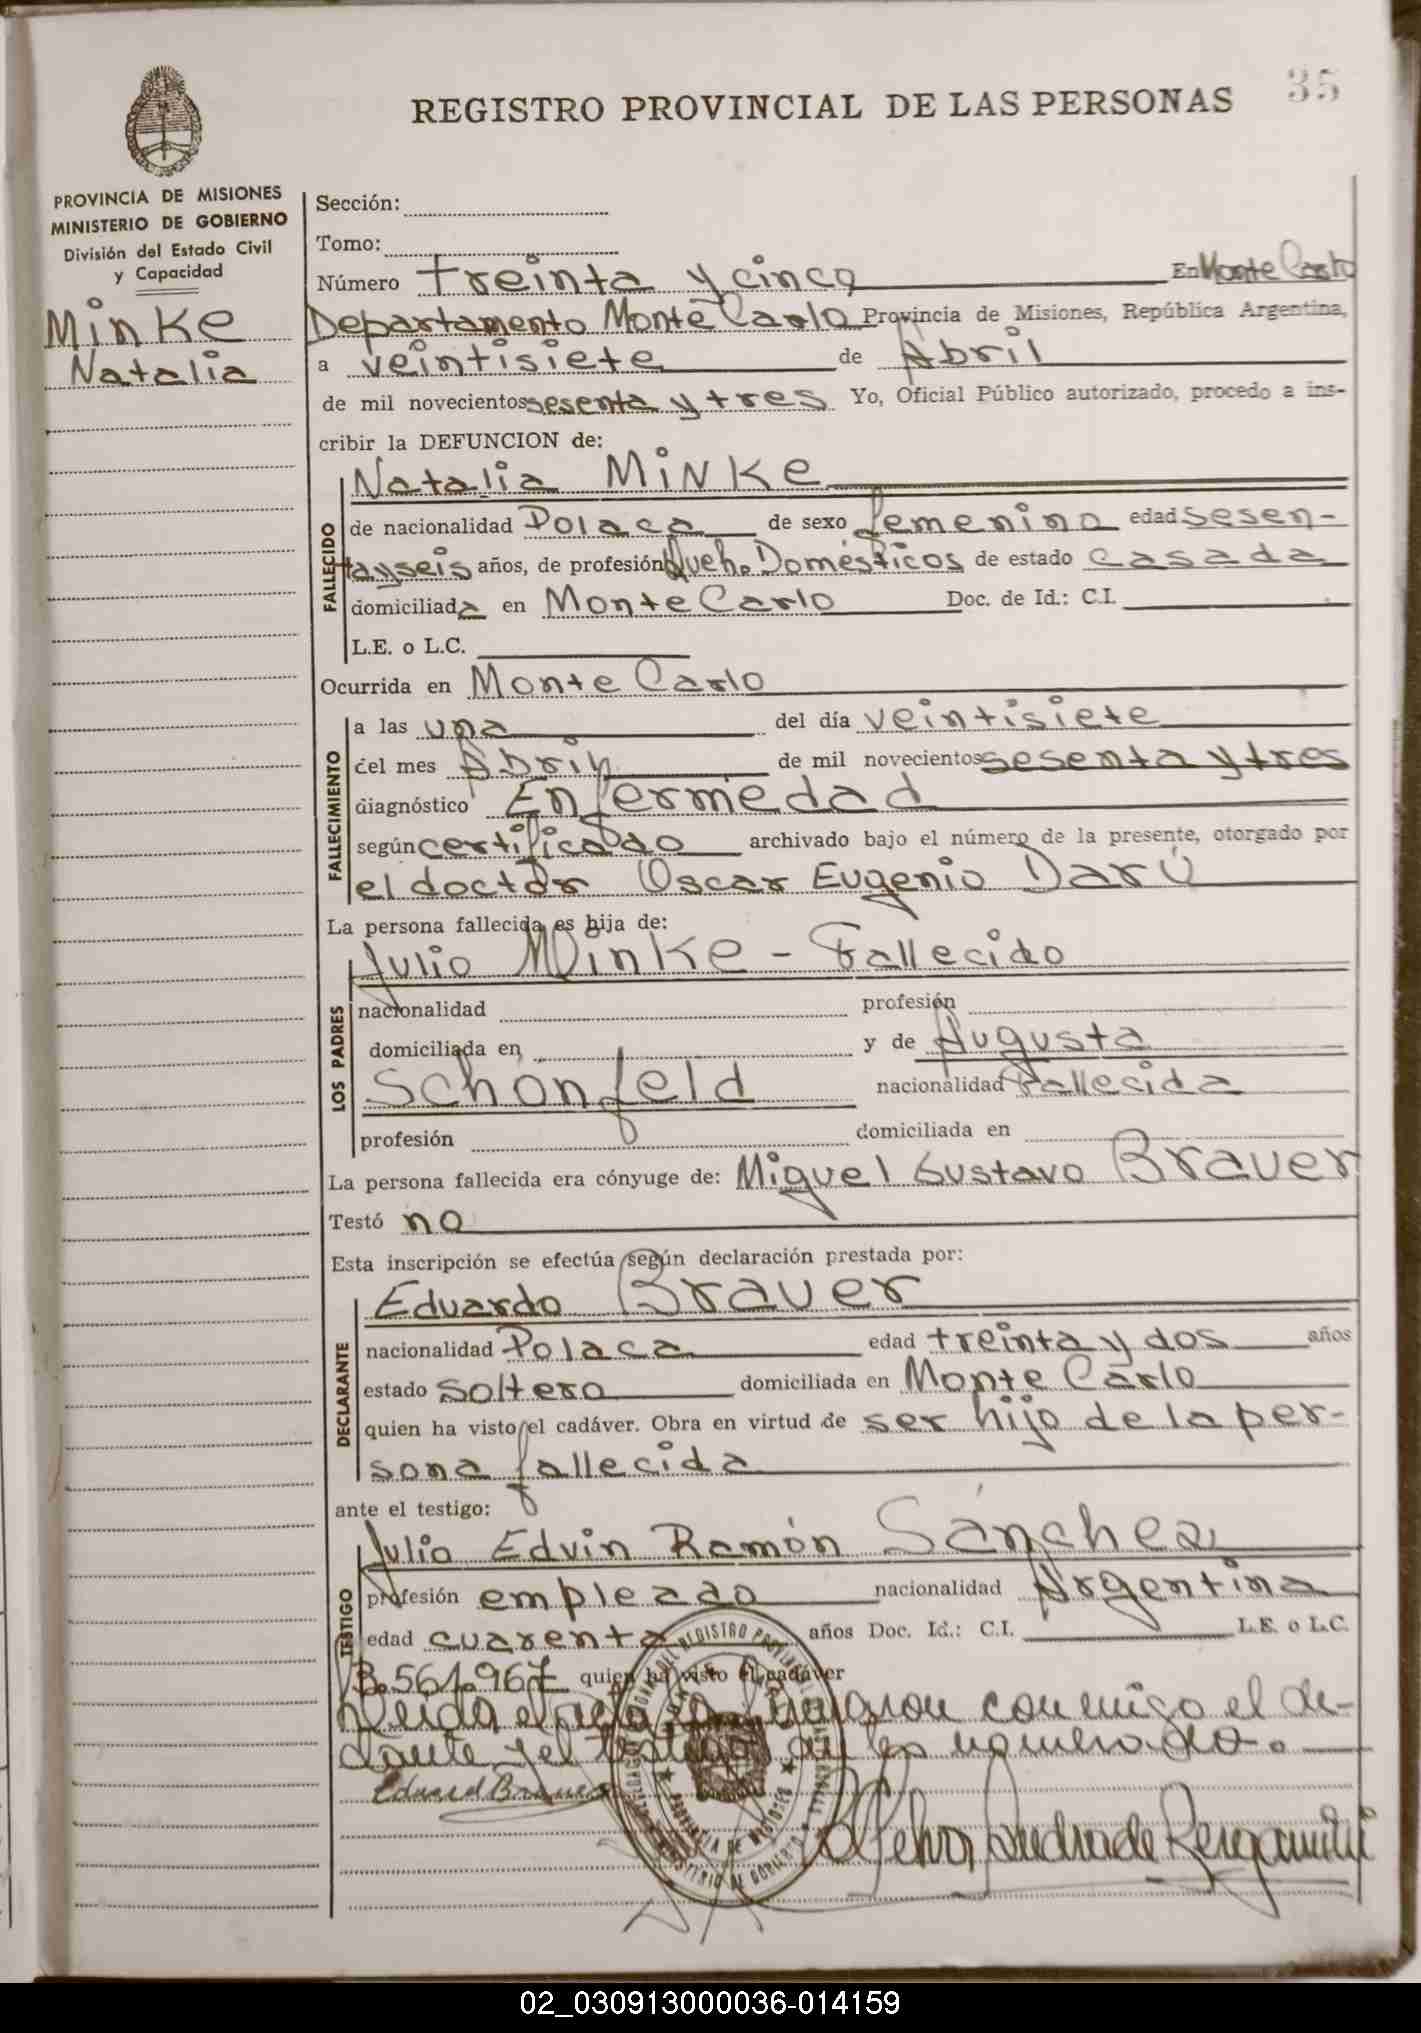 35
REGISTRO PROVINCIAL DE LAS PERSONAS
PROVINCIA DE MISIONES
MINISTERIO DE GOBIERNO
División del Estado Civil
y Capacidad
Minke
Natalia
Sección:
Tomo:
Número treinta y cinco En Monte Carlo
Departamento Monte Carlo Provincia de Misiones, República Argentina,
a veintisiete de Abril
de mil novecientos sesenta y tres Yo, Oficial Público autorizado, procedo a ins-
cribir la DEFUNCION de:
FALLECIDO
Natalia Minke
de nacionalidad Polaca de sexo femenino edad sesen-
tayseis años, de profesión Queh. Domésticos de estado casada
domiciliada en Monte Carlo Doc. de Id.: C.I.
L.E. o L.C.
Ocurrida en Monte Carlo
FALLECIMIENTO
a las una del día veintisiete
del mes Abril de mil novecientos sesenta y tres
diagnóstico Enfermedad
según certificado archivado bajo el número de la presente, otorgado por
el doctor Oscar Eugenio Darú
La persona fallecida es hija de:
LOS PADRES
Julio Minke - Fallecido
nacionalidad profesión
domiciliada en y de Augusta
Schönfeld nacionalidad Fallecida
profesión domiciliada en
La persona fallecida era cónyuge de: Miguel Gustavo Brauer
Testó no
Esta inscripción se efectúa según declaración prestada por:
DECLARANTE
Eduardo Brauer
nacionalidad Polaca edad treinta y dos años
estado soltero domiciliada en Monte Carlo
quien ha visto el cadáver. Obra en virtud de ser hijo de la per-
sona fallecida
ante el testigo:
TESTIGO
Julio Edvin Ramón Sánchez
profesión empleado nacionalidad Argentina
edad cuarenta años Doc. Id.: C.I. L.E. o L.C.
3.561.967 quien ha visto el cadáver
Leída el acta la firmaron conmigo el de-
clarante y el testigo
Eduard Brauer
02_030913000036-014159